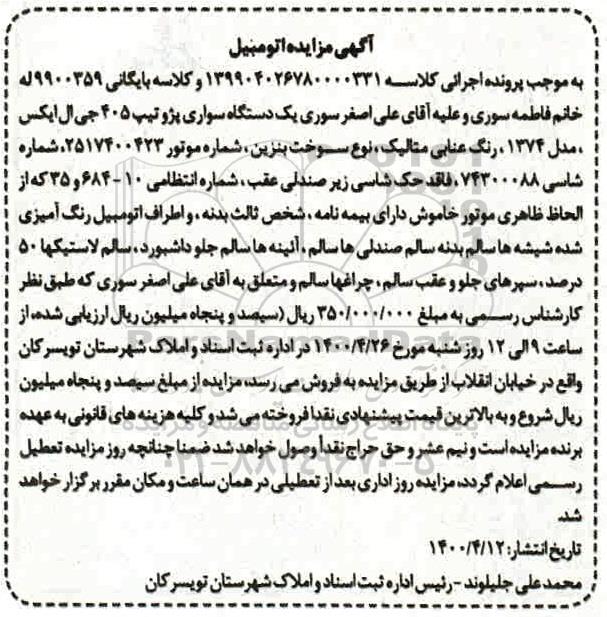 آگهی مزایده اتومبیل
به موجب پرونده اجرائی کلاسه ۱۳۹۹۰۴۰۲۶۷۸۰۰۰۰۳۳۱ و کلاسه بایگانی ۹۹۰۰۳۵۹ له
خانم فاطمه سوری و علیه آقای علی اصغر سوری یک دستگاه سواری پژو تیپ ۴۰۵ جی ال ایکس
، مدل ۱۳۷۴ ، رنگ عنابی متالیک ، نوع سوخت بنزین ، شماره موتور ۲۵۱۷۴۰۰۴۲۳، شماره
شاسی ۷۴۳۰۰۰۸۸ ، فاقد حک شاسی زیر صندلی عقب ، شماره انتظامی ۱۰ - ۶۸۴ و ۳۵ که از
الحاظ ظاهری موتور خاموش دارای بیمه نامه ، شخص ثالث بدنه ، و اطراف اتومبیل رنگ آمیزی
شده شیشه ها سالم بدنه سالم صندلی ها سالم ، آئینه ها سالم جلو داشبورد ، سالم لاستیکها ۵۰
درصد ، سپرهای جلو و عقب سالم ، چراغها سالم و متعلق به آقای علی اصغر سوری که طبق نظر
کارشناس رسمی به مبلغ ۳۵۰/۰۰۰/۰۰۰ ریال (سیصد و پنجاه میلیون ریال ارزیابی شده، از
ساعت ۹ الی ۱۲ روز شنبه مورخ ۱۴۰۰/۴/۲۶ در اداره ثبت اسناد و املاک شهرستان تویسرکان
واقع در خیابان انقلاب از طریق مزایده به فروش می رسد، مزایده از مبلغ سیصد و پنجاه میلیون
ریال شروع و به بالاترین قیمت پیشنهادی نقدا فروخته می شد و کلیه هزینه های قانونی به عهده
برنده مزایده است و نیم عشر و حق حراج نقدأ وصول خواهد شد ضمنا چنانچه روز مزایده تعطیل
رسمی اعلام گردد، مزایده روز اداری بعد از تعطیلی در همان ساعت و مکان مقرر برگزار خواهد
شد.
تاریخ انتشار: ۱۴۰۰/۴/۱۲
محمد علی جلیلوند - رئیس اداره ثبت اسناد و املاک شهرستان تویسرکان
ParsNamadData
پایگاه اطلاع رسانی مناقصه و مزایده
۰۲۱-۸۸۳۴۹۶۷۰-۵